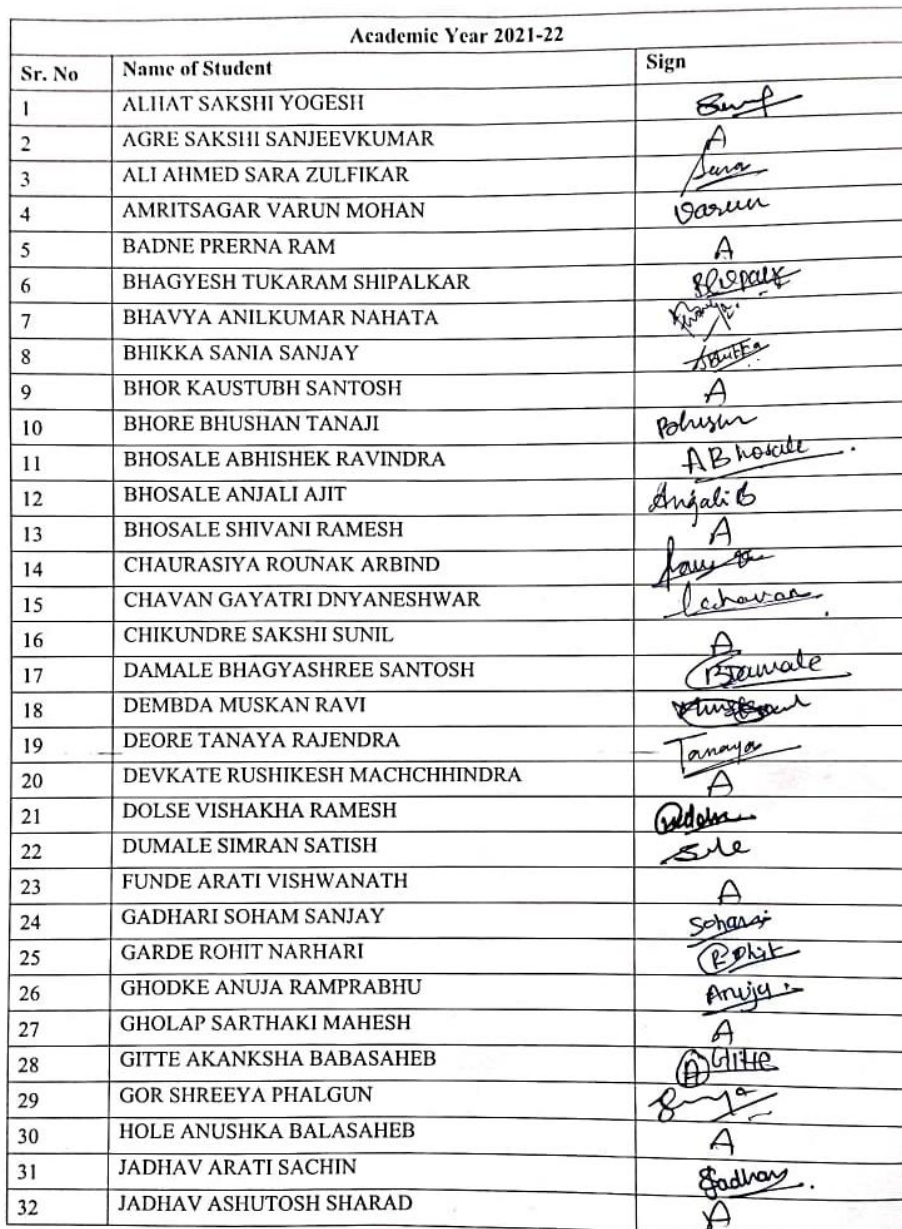 Academic Year 2021-22
Sr. No Name of Student Sign
1 ALHAT SAKSHI YOGESH
2 AGRE SAKSHI SANJEEVKUMAR A
3 ALI AHMED SARA ZULFIKAR Sara
4 AMRITSAGAR VARUN MOHAN Varun
5 BADNE PRERNA RAM A
6 BHAGYESH TUKARAM SHIPALKAR
7 BHAVYA ANILKUMAR NAHATA
8 BHIKKA SANIA SANJAY
9 BHOR KAUSTUBH SANTOSH A
10 BHORE BHUSHAN TANAJI
11 BHOSALE ABHISHEK RAVINDRA ABhosale.
12 BHOSALE ANJALI AJIT Anjali B
13 BHOSALE SHIVANI RAMESH A
14 CHAURASIYA ROUNAK ARBIND
15 CHAVAN GAYATRI DNYANESHWAR
16 CHIKUNDRE SAKSHI SUNIL A
17 DAMALE BHAGYASHREE SANTOSH BDamale
18 DEMBDA MUSKAN RAVI
19 DEORE TANAYA RAJENDRA Tanaya
20 DEVKATE RUSHIKESH MACHCHHINDRA A
21 DOLSE VISHAKHA RAMESH
22 DUMALE SIMRAN SATISH
23 FUNDE ARATI VISHWANATH A
24 GADHARI SOHAM SANJAY
25 GARDE ROHIT NARHARI Rohit
26 GHODKE ANUJA RAMPRABHU Anuja.
27 GHOLAP SARTHAKI MAHESH A
28 GITTE AKANKSHA BABASAHEB A Gitte
29 GOR SHREEYA PHALGUN
30 HOLE ANUSHKA BALASAHEB A
31 JADHAV ARATI SACHIN Jadhav.
32 JADHAV ASHUTOSH SHARAD A